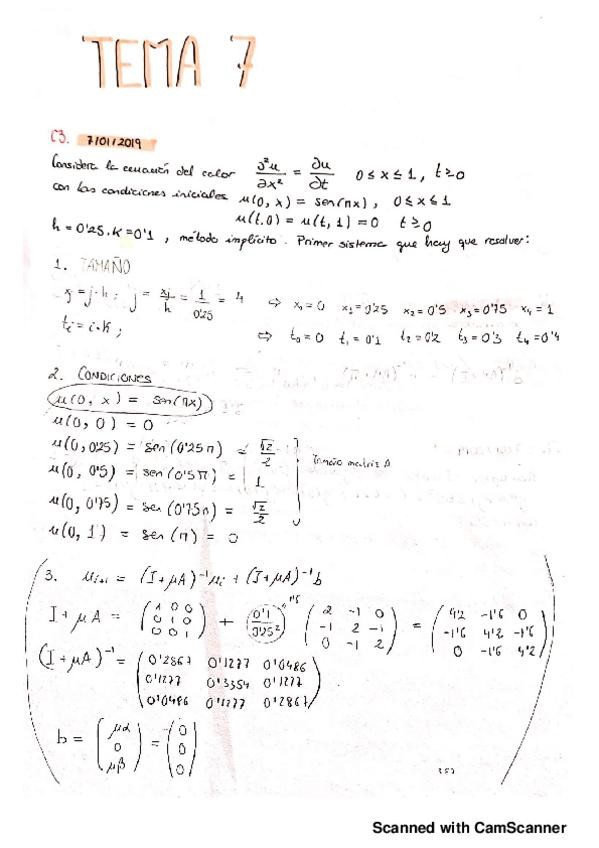 TEMA 7
C3. 7/01/2019
Considera la ecuación del calor ∂²u/∂x² = ∂u/∂t 0 ≤ x ≤ 1, t ≥ 0
con las condiciones iniciales u(0, x) = sen(πx), 0 ≤ x ≤ 1
u(t, 0) = u(t, 1) = 0 t ≥ 0
h = 0'25, K = 0'1, método implícito. Primer sistema que hay que resolver:
1. TAMAÑO
xj = j·h; j = xj/h = 1/0'25 = 4 ⇒ x₀ = 0 x₁ = 0'25 x₂ = 0'5 x₃ = 0'75 x₄ = 1
ti = i·K; ⇒ t₀ = 0 t₁ = 0'1 t₂ = 0'2 t₃ = 0'3 t₄ = 0'4
2. CONDICIONES
u(0, x) = sen(πx)
u(0, 0) = 0
u(0, 0'25) = sen(0'25π) = √2/2
u(0, 0'5) = sen(0'5π) = 1 Tamaño matriz A
u(0, 0'75) = sen(0'75π) = √2/2
u(0, 1) = sen(π) = 0
3. uᵢ₊₁ = (I+μA)⁻¹uᵢ + (I+μA)⁻¹b
1'6
I + μA = (1 0 0; 0 1 0; 0 0 1) + 0'1/0'25² (2 -1 0; -1 2 -1; 0 -1 2) = (4'2 -1'6 0; -1'6 4'2 -1'6; 0 -1'6 4'2)
(I + μA)⁻¹ = (0'2867 0'1277 0'0486; 0'1277 0'3354 0'1277; 0'0486 0'1277 0'2867)
b = (μα; 0; μβ) = (0; 0; 0)
Scanned with CamScanner